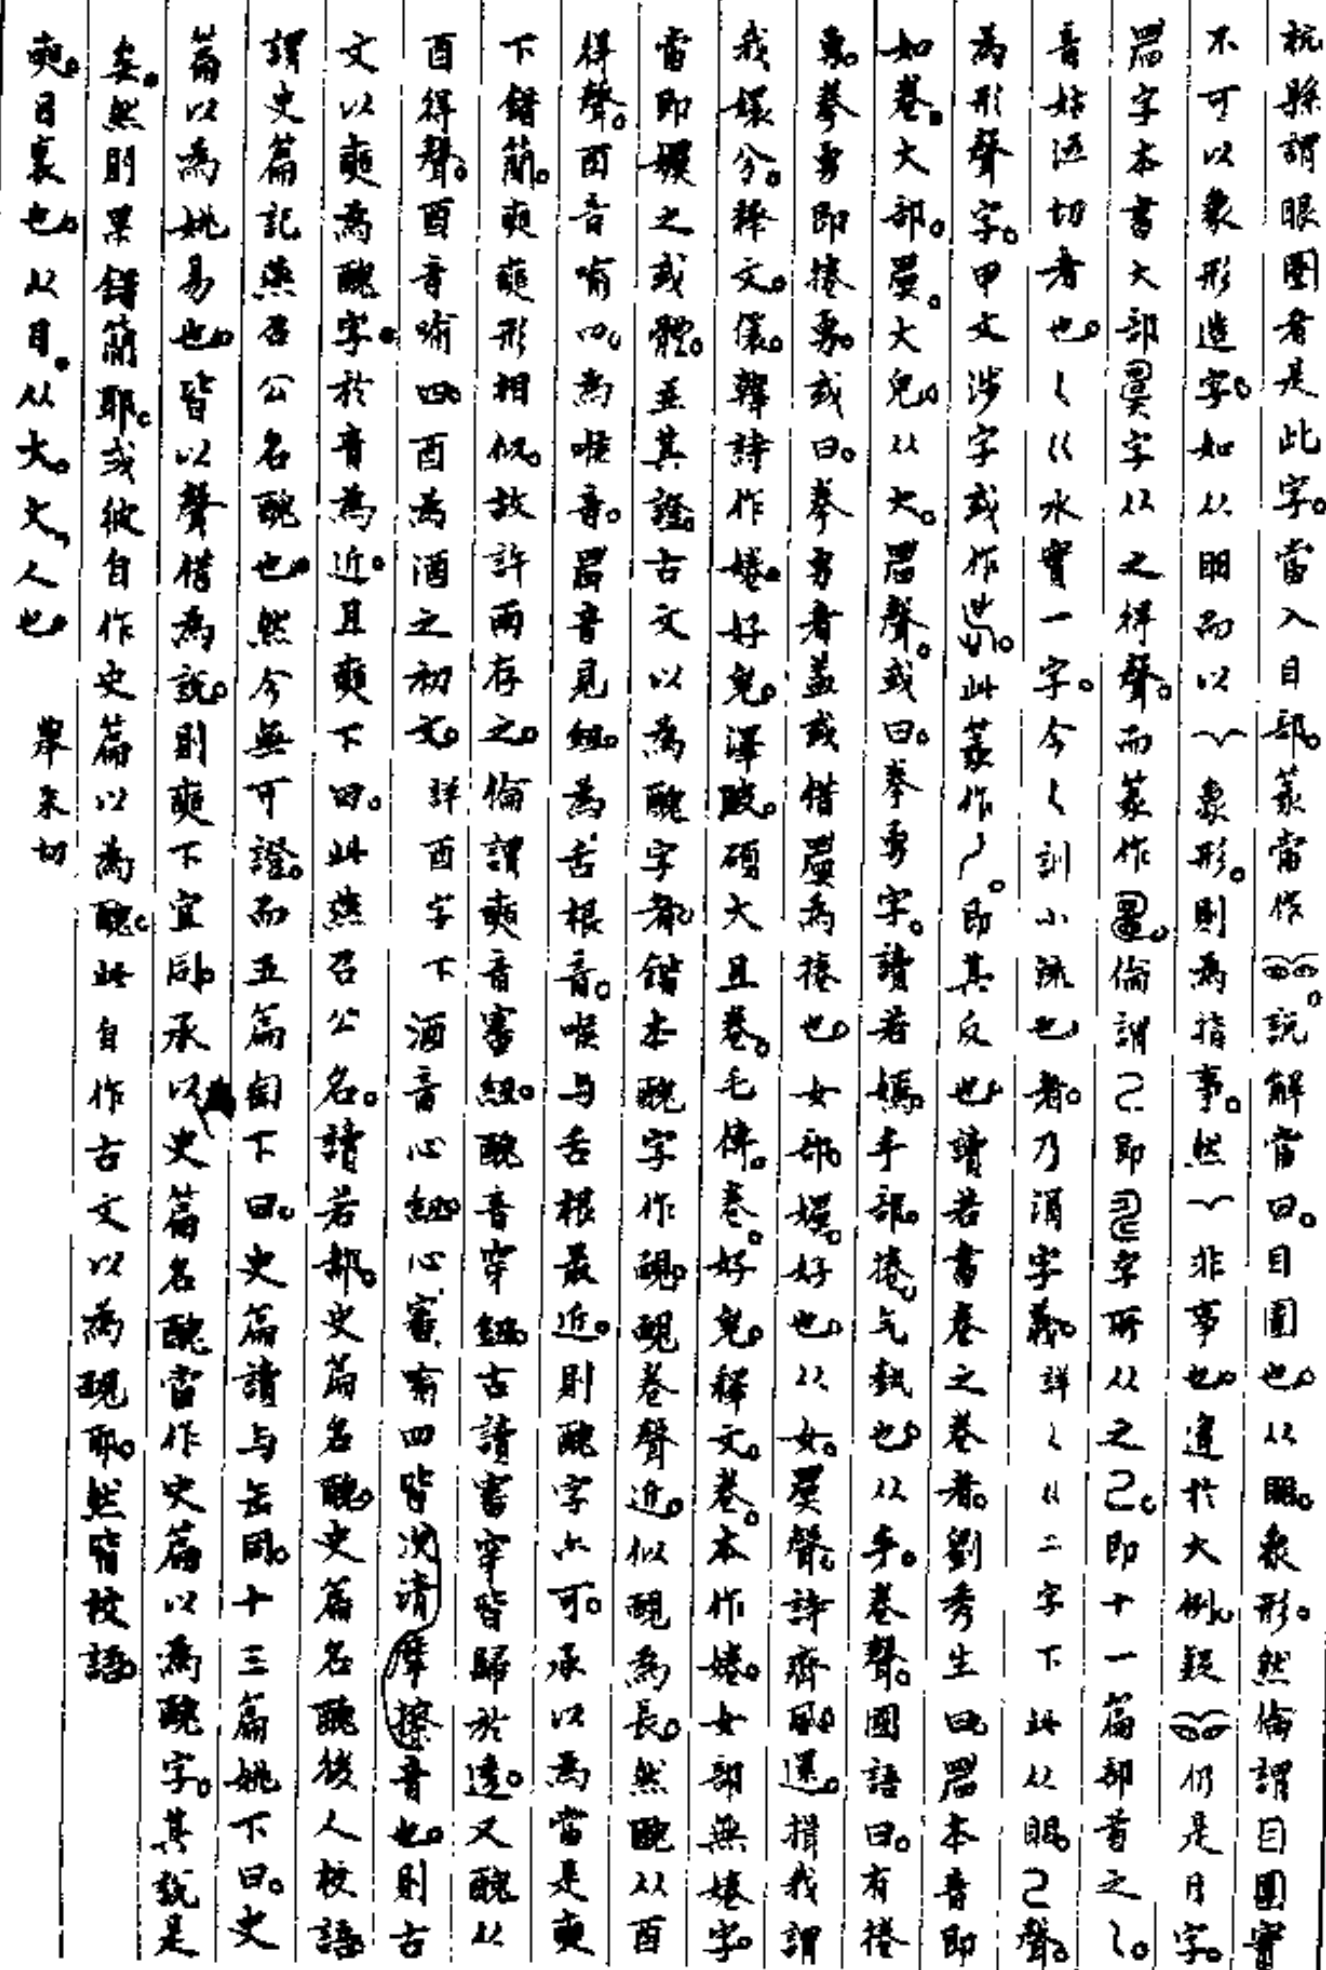 杭縣謂眼圈者是此字。當入目部。篆當作。說解當曰。目圍也。从䀠。象形。然倫謂目圍實
不可以象形造字。如从䀠而以象形。則為指事。然非事也。違於大例。疑仍是目字。
㗊字本書大部字从之得聲。而篆作。倫謂己即字所从之己。即十一篇部首之乀。
音姑泫切者也。𡿨巜水實一字。今𡿨訓小流也者。乃涓字義。詳𡿨巜二字下。此从䀠。己聲。
為形聲字。甲文涉字或作。此篆作。即其反也。讀若書卷之卷者。劉秀生曰。㗊本音即
如卷。大部。㚠。大皃。从大。㗊聲。或曰。拳勇字。讀若傿。手部。捲。气勢也。从手。卷聲。國語曰。有捲
勇。拳勇即捲勇。或曰。拳勇者蓋或借㚠為捲也。女部。嬽。好也。从女。㚠聲。詩齊風。還。揖我謂
我嬛兮。釋文。儇。韓詩作婘。好皃。澤陂。碩大且卷。毛傳。卷。好皃。釋文。卷。本作婘。女部無婘字。
當即嬽之或體。並其證。古文以為醜字者。鍇本醜字作䩤。䩤卷聲近。似䩤為長。然醜从酉
得聲。酉音喻四。為喉音。㗊音見紐。為舌根音。喉与舌根最近。則醜字亦可。承以為當是奭
下錯簡。奭奭形相似。故許兩存之。倫謂奭音審紐。醜音穿紐。古讀審穿皆歸於透。又醜从
酉得聲。酉音喻四。酉為酒之初文。詳酉字下。酒音心紐。心審喻四皆次清摩擦音也。則古
文以奭為醜字。於音為近。且奭下曰。此燕召公名。讀若郝。史篇名醜。史篇名醜後人校語
謂史篇記燕召公名醜也。然今無可證。而五篇匋下曰。史篇讀与缶同。十三篇姚下曰。史
篇以為姚易也。皆以聲借為說。則奭下宜同。承以史篇名醜當作史篇以為醜字。其說是
矣。然則果錯簡耶。或彼自作史篇以為醜。此自作古文以為䩤耶。然皆校語。
奭。目衺也。从目。从大。大人也。 舉朱切